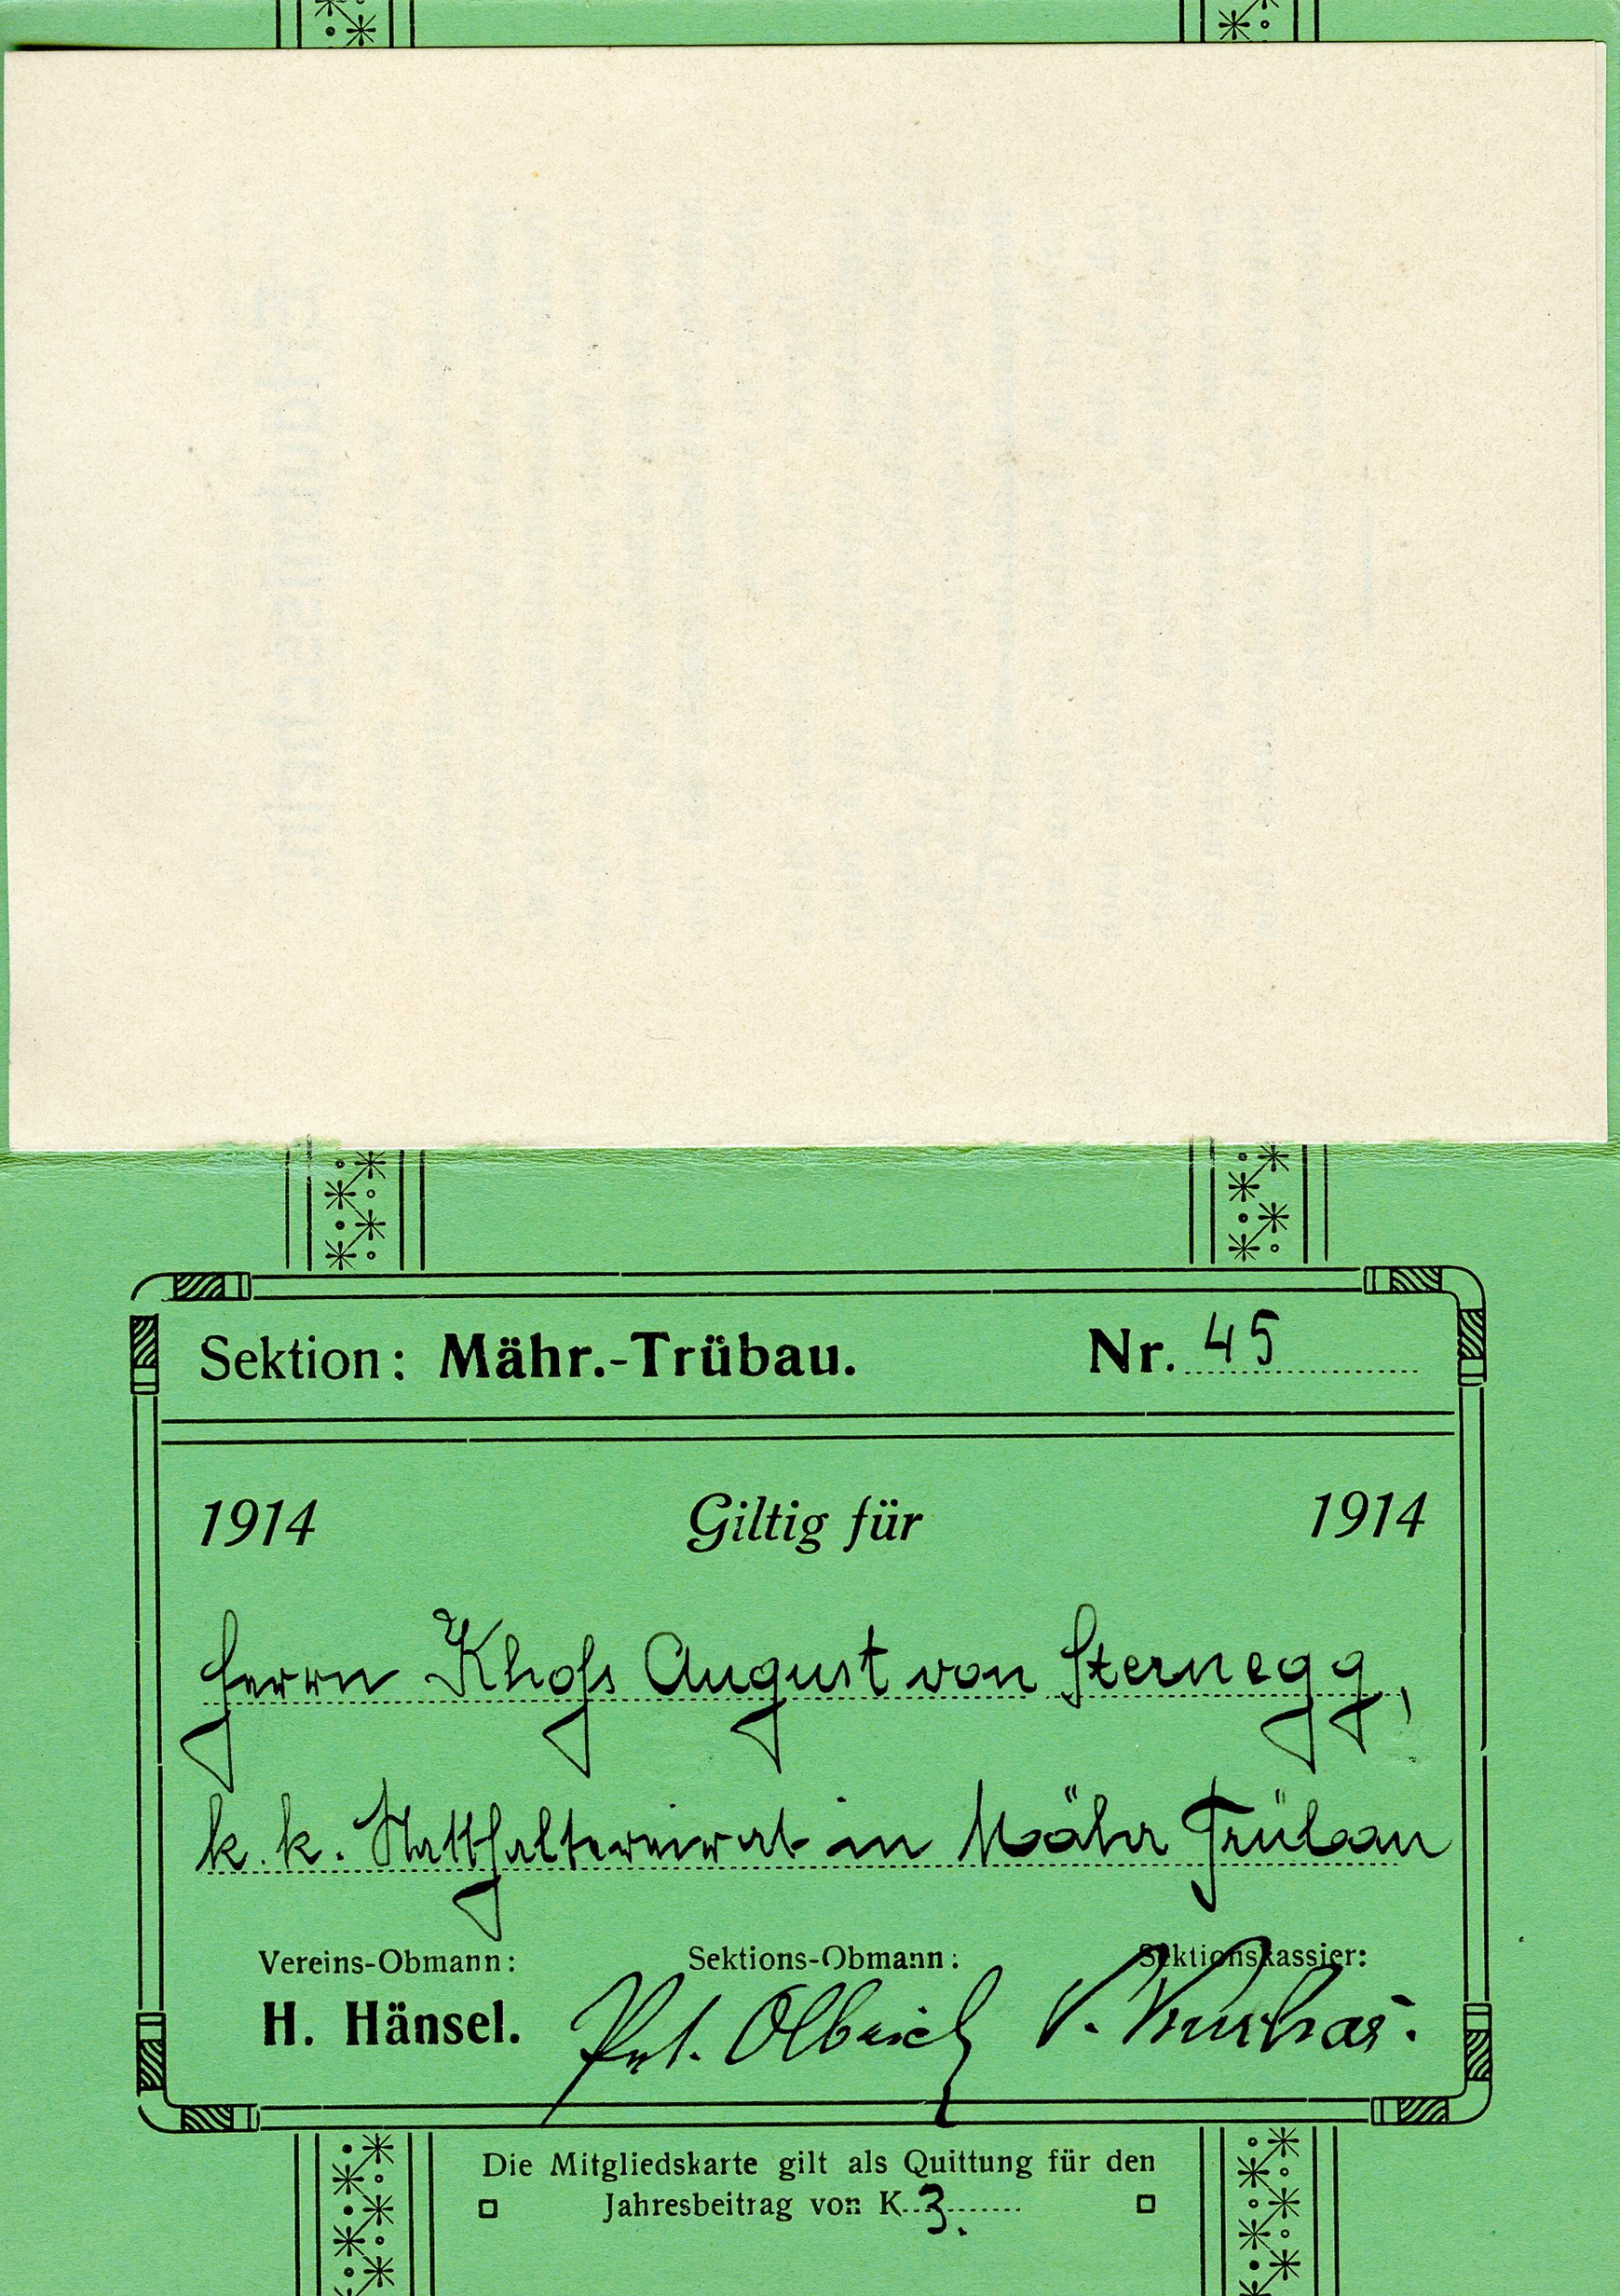 Sektion: Mähr.-Trübau. Nr. 45
1914 Giltig für 1914
Herrn Khoß August von Sternegg,
k. k. Statthaltereirat in Mähr Trübau
Vereins-Obmann: Sektions-Obmann: Sektionskassier:
H. Hänsel. Olbrich V.
Die Mitgliedskarte gilt als Quittung für den
Jahresbeitrag von K 3.